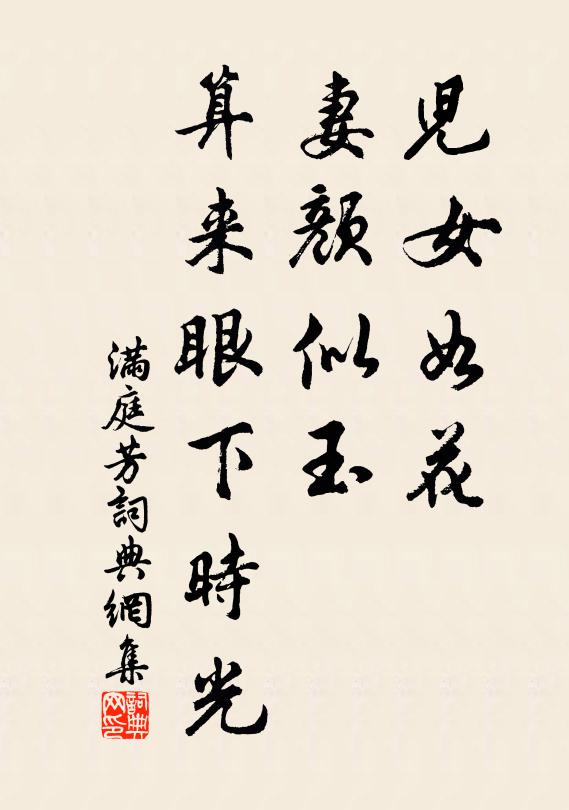 兒女如花
妻顏似玉
算来眼下時光
滿庭芳詞典網集
詞典网印